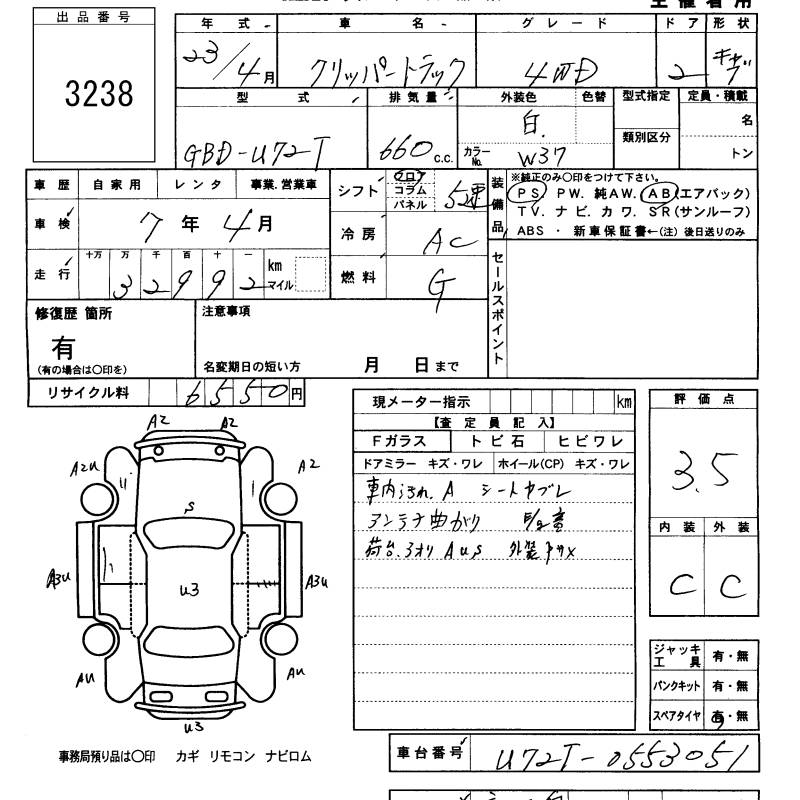 出品番号
3238
年式 車名 グレード ドア 形状
23/4月 クリッパートラック 4WD 2
型式 排気量 外装色 色替 型式指定 定員・積載
GBD-U72T 660c.c. 白. 類別区分 名
カラーNo. W37 トン
車歴 自家用 レンタ 事業.営業車
シフト フロア コラム パネル 5速
装備品
※純正のみ〇印をつけて下さい。
PS. PW. 純AW. AB(エアバック)
TV. ナビ. カワ. SR(サンルーフ)
ABS ・ 新車保証書←(注) 後日送りのみ
車検 7年4月
冷房 AC
走行 十万 万 千 百 十 一
32992 km マイル
燃料 G
セールスポイント
修復歴 箇所 注意事項
有
(有の場合は〇印を) 名変期日の短い方 月 日まで
リサイクル料 6550円
現メーター指示 km
【査定員記入】
Fガラス トビ石 ヒビワレ
ドアミラー キズ・ワレ ホイール(CP) キズ・ワレ
車内汚れ. A シートヤブレ
アンテナ曲がり
荷台.
評価点
3.5
内装 外装
C C
A2 A2
A2U A2
S
A3U U3 A3U
AU AU
U3
ジャッキ工具 有・無
パンクキット 有・無
スペアタイヤ 有・無
事務局預り品は〇印 カギ リモコン ナビロム
車台番号 U72T-0553051